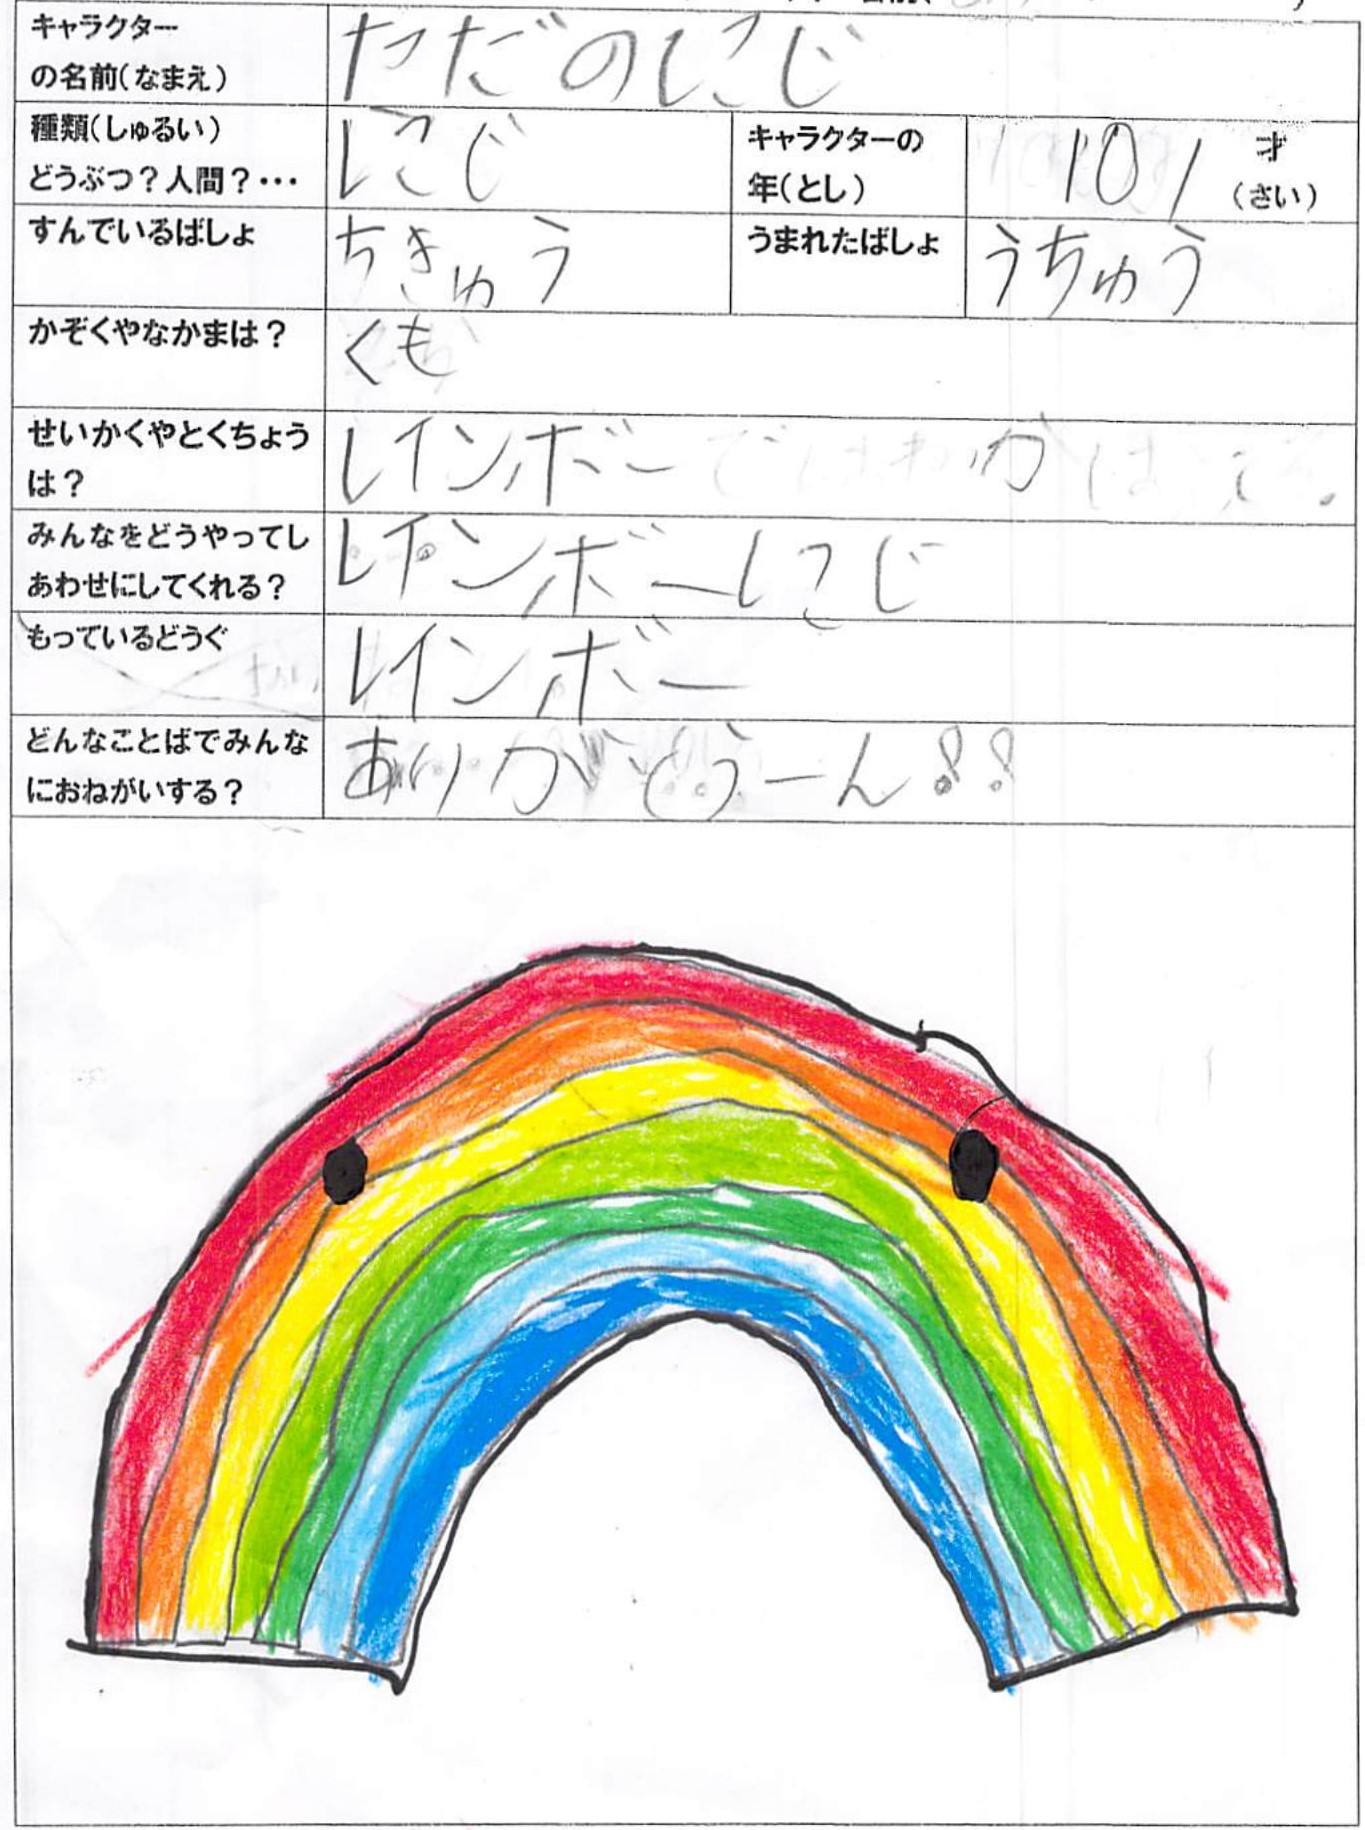 キャラクター
の名前(なまえ)
ただのにじ
種類(しゅるい)
どうぶつ?人間?・・・
にじ
キャラクターの
年(とし)
101
才
(さい)
すんでいるばしょ
ちきゅう
うまれたばしょ
うちゅう
かぞくやなかまは?
くも
せいかくやとくちょう
は?
レインボー
みんなをどうやってし
あわせにしてくれる?
レインボーにじ
もっているどうぐ
レインボー
どんなことばでみんな
におねがいする?
ありがとうーん!!